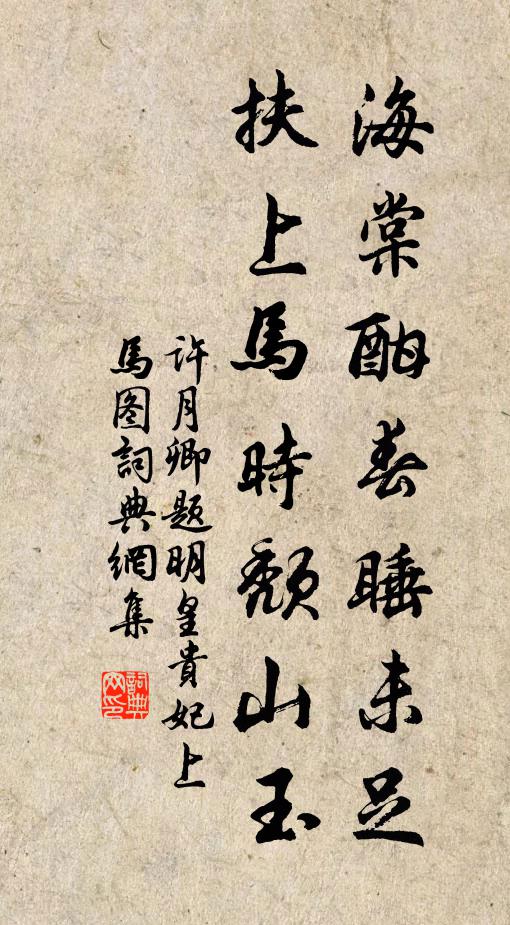 海棠酣春睡未足
扶上馬時頹山玉
許月卿題明皇貴妃上
馬图詞典網集
詞典網印